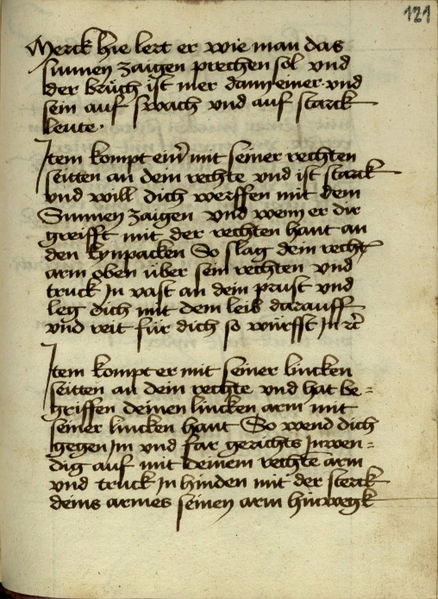 121
Merck hie lert er wie man das
Sunnen zaigen prechen sol vnd
der brüch ist mer dann einer vnd
sein auf swach vnd auf starck
leute ·
Item kompt einer mit seiner rechten
seitten an dein rechte vnd ist starck
vnd will dich werffen mit dem
Sunnen zaigen vnd wenn er dir
greifft mit der rechten hant an
den kynpacken So slag dein rechtn
arm oben über sein rechten vnd
truck In vast an dein prust vnd
leg dich mit dem leib darauff
vnd reit für dich so würfft In rc
Item kompt er mit seiner lincken
seitten an dein rechte vnd hat be=
griffen deinen lincken arm mit
seiner lincken hant So wend dich
gegen Im vnd far gerichts Inwen=
dig auf mit deinem rechten arm
vnd truck In hinden mit der sterck
deins armes seinen arm hinwegk